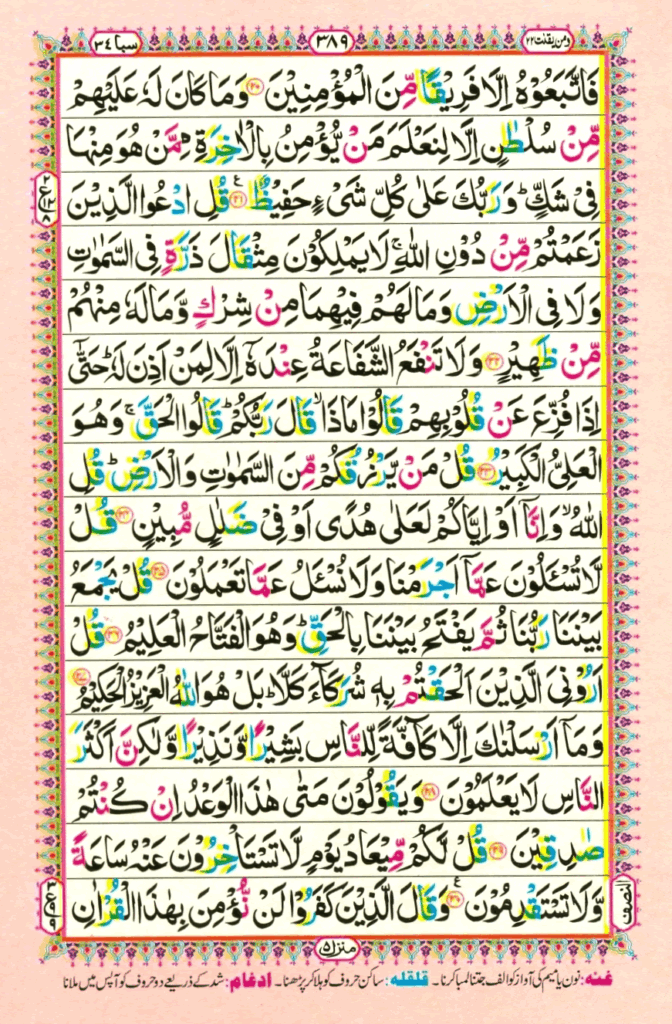 ومن یقنت ۲۲ ۳۸۹ سبا ۳٤
فَاتَّبَعُوْهُ اِلَّا فَرِیْقًا مِّنَ الْمُؤْمِنِیْنَ ﴿۲۰﴾ وَمَا كَانَ لَهٗ عَلَیْهِمْ
مِّنْ سُلْطٰنٍ اِلَّا لِنَعْلَمَ مَنْ یُّؤْمِنُ بِالْاٰخِرَةِ مِمَّنْ هُوَ مِنْهَا
فِیْ شَكٍّ ؕ وَرَبُّكَ عَلٰی كُلِّ شَیْءٍ حَفِیْظٌ ﴿۲۱﴾ قُلِ ادْعُوا الَّذِیْنَ
زَعَمْتُمْ مِّنْ دُوْنِ اللّٰهِ ۚ لَا یَمْلِكُوْنَ مِثْقَالَ ذَرَّةٍ فِی السَّمٰوٰتِ
وَلَا فِی الْاَرْضِ وَمَا لَهُمْ فِیْهِمَا مِنْ شِرْكٍ وَّمَا لَهٗ مِنْهُمْ
مِّنْ ظَهِیْرٍ ﴿۲۲﴾ وَلَا تَنْفَعُ الشَّفَاعَةُ عِنْدَهٗۤ اِلَّا لِمَنْ اَذِنَ لَهٗ ؕ حَتّٰۤی
اِذَا فُزِّعَ عَنْ قُلُوْبِهِمْ قَالُوْا مَاذَا ۙ قَالَ رَبُّكُمْ ؕ قَالُوا الْحَقَّ ۚ وَهُوَ
الْعَلِیُّ الْكَبِیْرُ ﴿۲۳﴾ قُلْ مَنْ یَّرْزُقُكُمْ مِّنَ السَّمٰوٰتِ وَالْاَرْضِ ؕ قُلِ
اللّٰهُ ۙ وَاِنَّاۤ اَوْ اِیَّاكُمْ لَعَلٰی هُدًی اَوْ فِیْ ضَلٰلٍ مُّبِیْنٍ ﴿۲۴﴾ قُلْ
لَّا تُسْـَٔلُوْنَ عَمَّاۤ اَجْرَمْنَا وَلَا نُسْـَٔلُ عَمَّا تَعْمَلُوْنَ ﴿۲۵﴾ قُلْ یَجْمَعُ
بَیْنَنَا رَبُّنَا ثُمَّ یَفْتَحُ بَیْنَنَا بِالْحَقِّ ؕ وَهُوَ الْفَتَّاحُ الْعَلِیْمُ ﴿۲۶﴾ قُلْ
اَرُوْنِیَ الَّذِیْنَ اَلْحَقْتُمْ بِهٖ شُرَكَآءَ كَلَّا ؕ بَلْ هُوَ اللّٰهُ الْعَزِیْزُ الْحَكِیْمُ ﴿۲۷﴾
وَمَاۤ اَرْسَلْنٰكَ اِلَّا كَآفَّةً لِّلنَّاسِ بَشِیْرًا وَّنَذِیْرًا وَّلٰكِنَّ اَكْثَرَ
النَّاسِ لَا یَعْلَمُوْنَ ﴿۲۸﴾ وَیَقُوْلُوْنَ مَتٰی هٰذَا الْوَعْدُ اِنْ كُنْتُمْ
صٰدِقِیْنَ ﴿۲۹﴾ قُلْ لَّكُمْ مِّیْعَادُ یَوْمٍ لَّا تَسْتَاْخِرُوْنَ عَنْهُ سَاعَةً
وَّلَا تَسْتَقْدِمُوْنَ ﴿۳۰﴾ وَقَالَ الَّذِیْنَ كَفَرُوْا لَنْ نُّؤْمِنَ بِهٰذَا الْقُرْاٰنِ
النصف
منزل ۵
غنہ: نون یا میم کی آواز کو الف جتنا لمبا کرنا۔ قلقلہ: ساکن حروف کو ہلا کر پڑھنا۔ ادغام: شد کے ذریعے دو حروف کو آپس میں ملانا